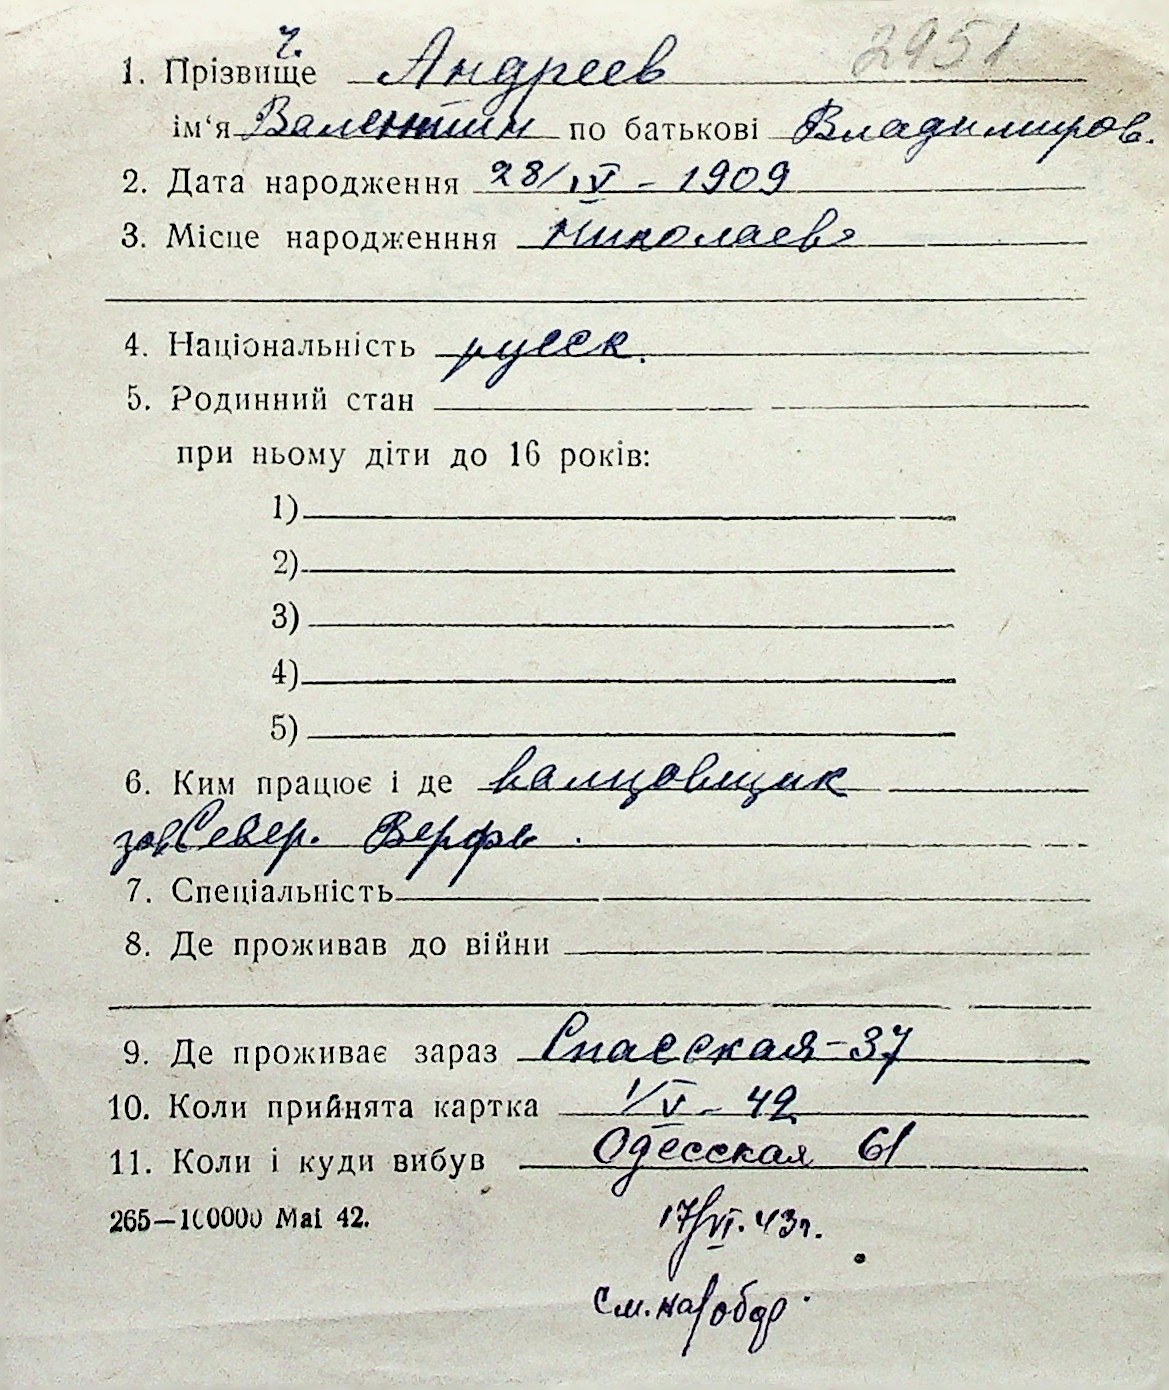 ч.
1. Прізвище Андреев 2951
ім‘я Валентин по батькові Владимиров.
2. Дата народження 28/IV – 1909
3. Місце народженння Николаев
4. Національність русск.
5. Родинний стан
при ньому діти до 16 років:
1)
2)
3)
4)
5)
6. Ким працює і де валцовщик
зав Север. Верфь.
7. Спеціальність
8. Де проживав до війни
9. Де проживає зараз Спасская–37
10. Коли прийнята картка 1/V – 42
11. Коли і куди вибув Одесская 61
265—100000 Mai 42. 17/VI. 43г.
См. на обор.